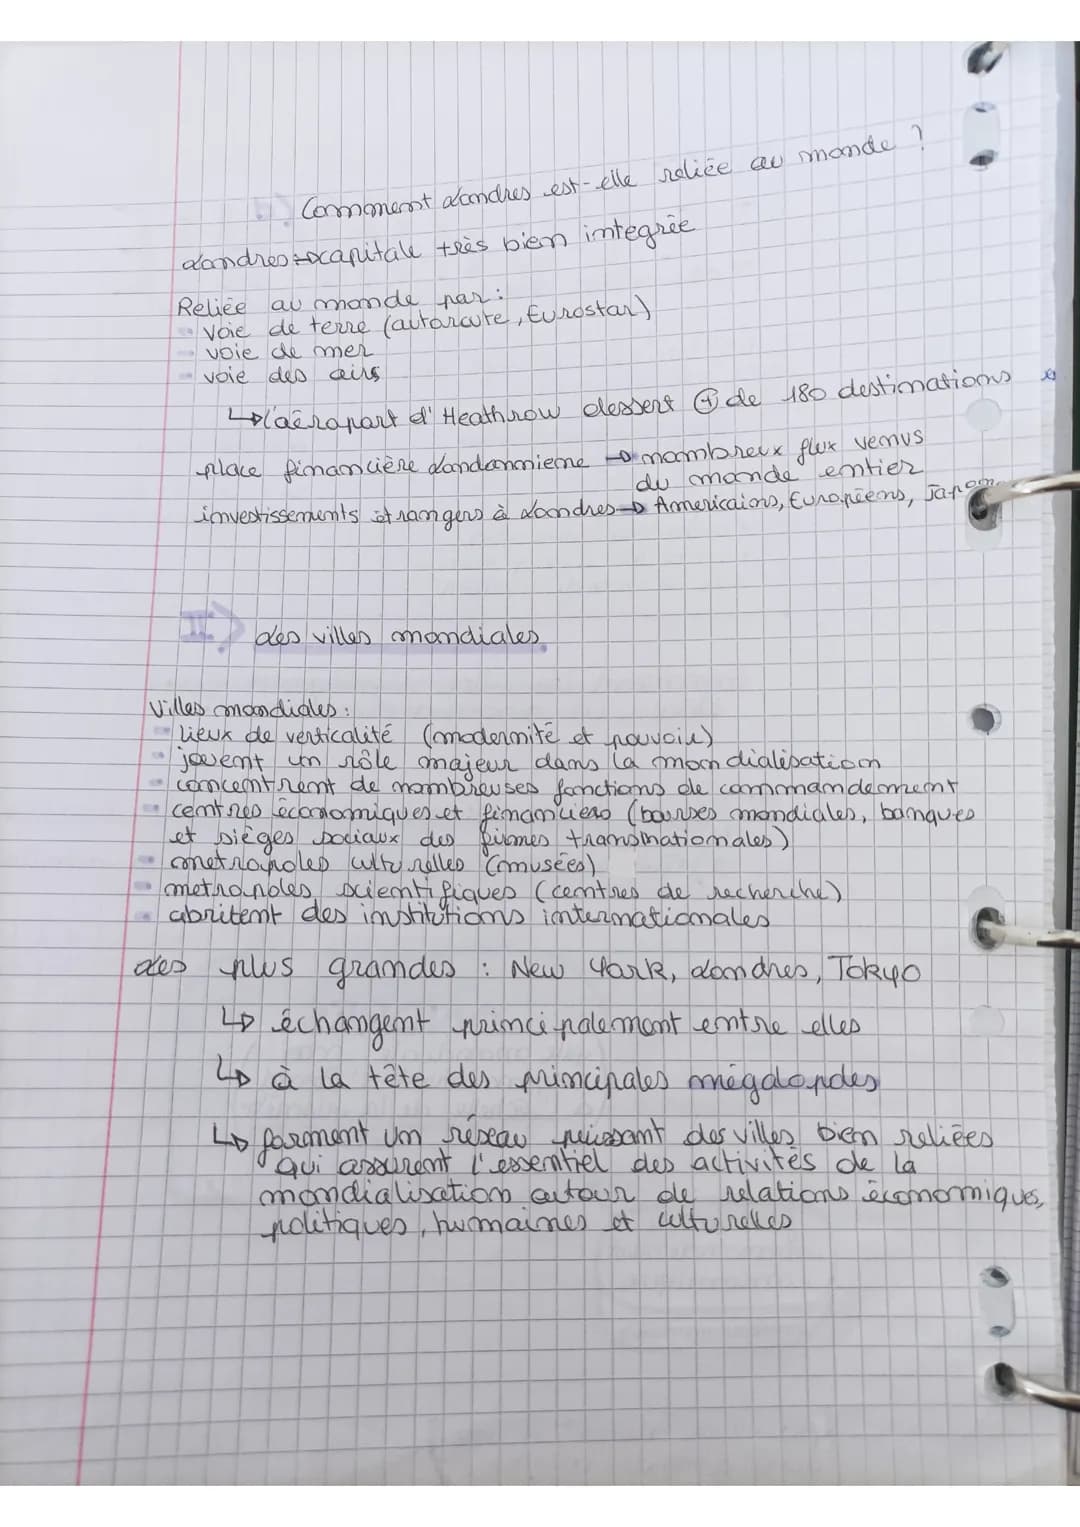 Comment Londres est-elle reliée au monde ?
Londres → capitale très bien integrée
Reliée au monde par :
voie de terre (autoroute, Eurostar)
voie de mer
voie des airs
↳ l'aéroport d'Heathrow dessert ⊕ de 180 destinations
place financière Londonnienne → nombreux flux venus
du monde entier
investissements étrangers à Londres → Americains, Européens,
II) Les villes mondiales
Villes mondiales :
lieux de verticalité (modernité et pouvoir)
jouent un rôle majeur dans la mondialisation
concentrent de nombreuses fonctions de commandement
centres économiques et financiers (bourses mondiales, banques
et sièges sociaux des firmes transnationales)
métropoles culturelles (musées)
metropoles scientifiques (centres de recherche)
abritent des institutions internationales
Les plus grandes : New York, Londres, Tokyo
↳ échangent principalement entre elles
↳ à la tête des principales mégalopoles
↳ forment un réseau puissant des villes bien reliées
qui assurent l'essentiel des activités de la
mondialisation autour de relations économiques,
politiques, humaines et culturelles